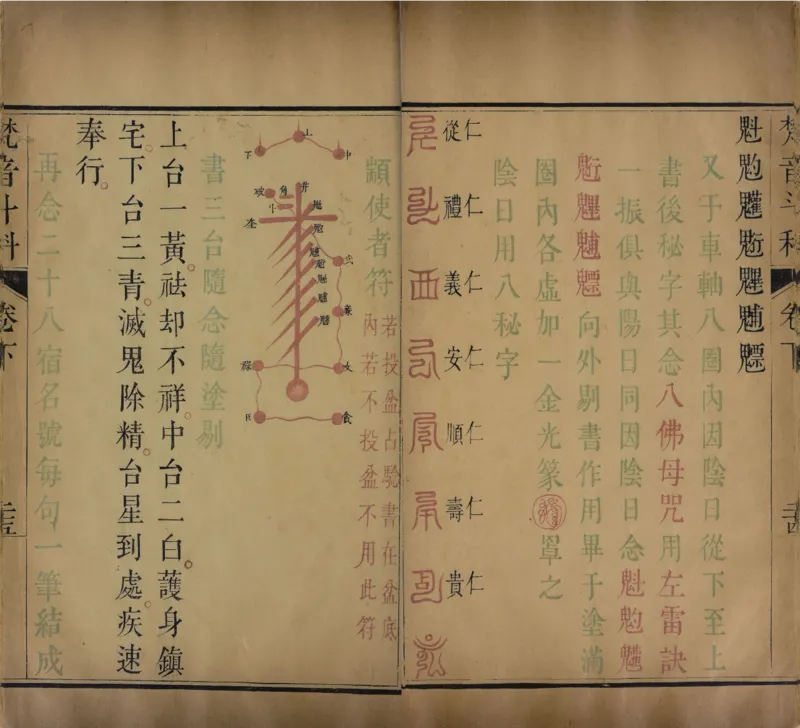 梵音斗科 卷下
魁 魒
又于車軸八圈內因陰日從下至上
書後秘字其念八佛母咒用左雷訣
一振俱與陽日同因陰日念魁
魒向外剔書作用畢于塗滿
圈內各虛加一金光篆 罩之
陰日用八秘字
仁從
仁禮
仁義
仁安
仁順
仁壽
仁貴
顓使者符
若投盆占驗書在盆底
內若不投盆不用此符
上
中
下
書三台隨念隨塗剔
上台一黃。祛却不祥。中台二白。護身鎮
宅。下台三青。滅鬼除精。台星到處。疾速
奉行。
再念二十八宿名號每句一筆結成
梵音斗科 卷下